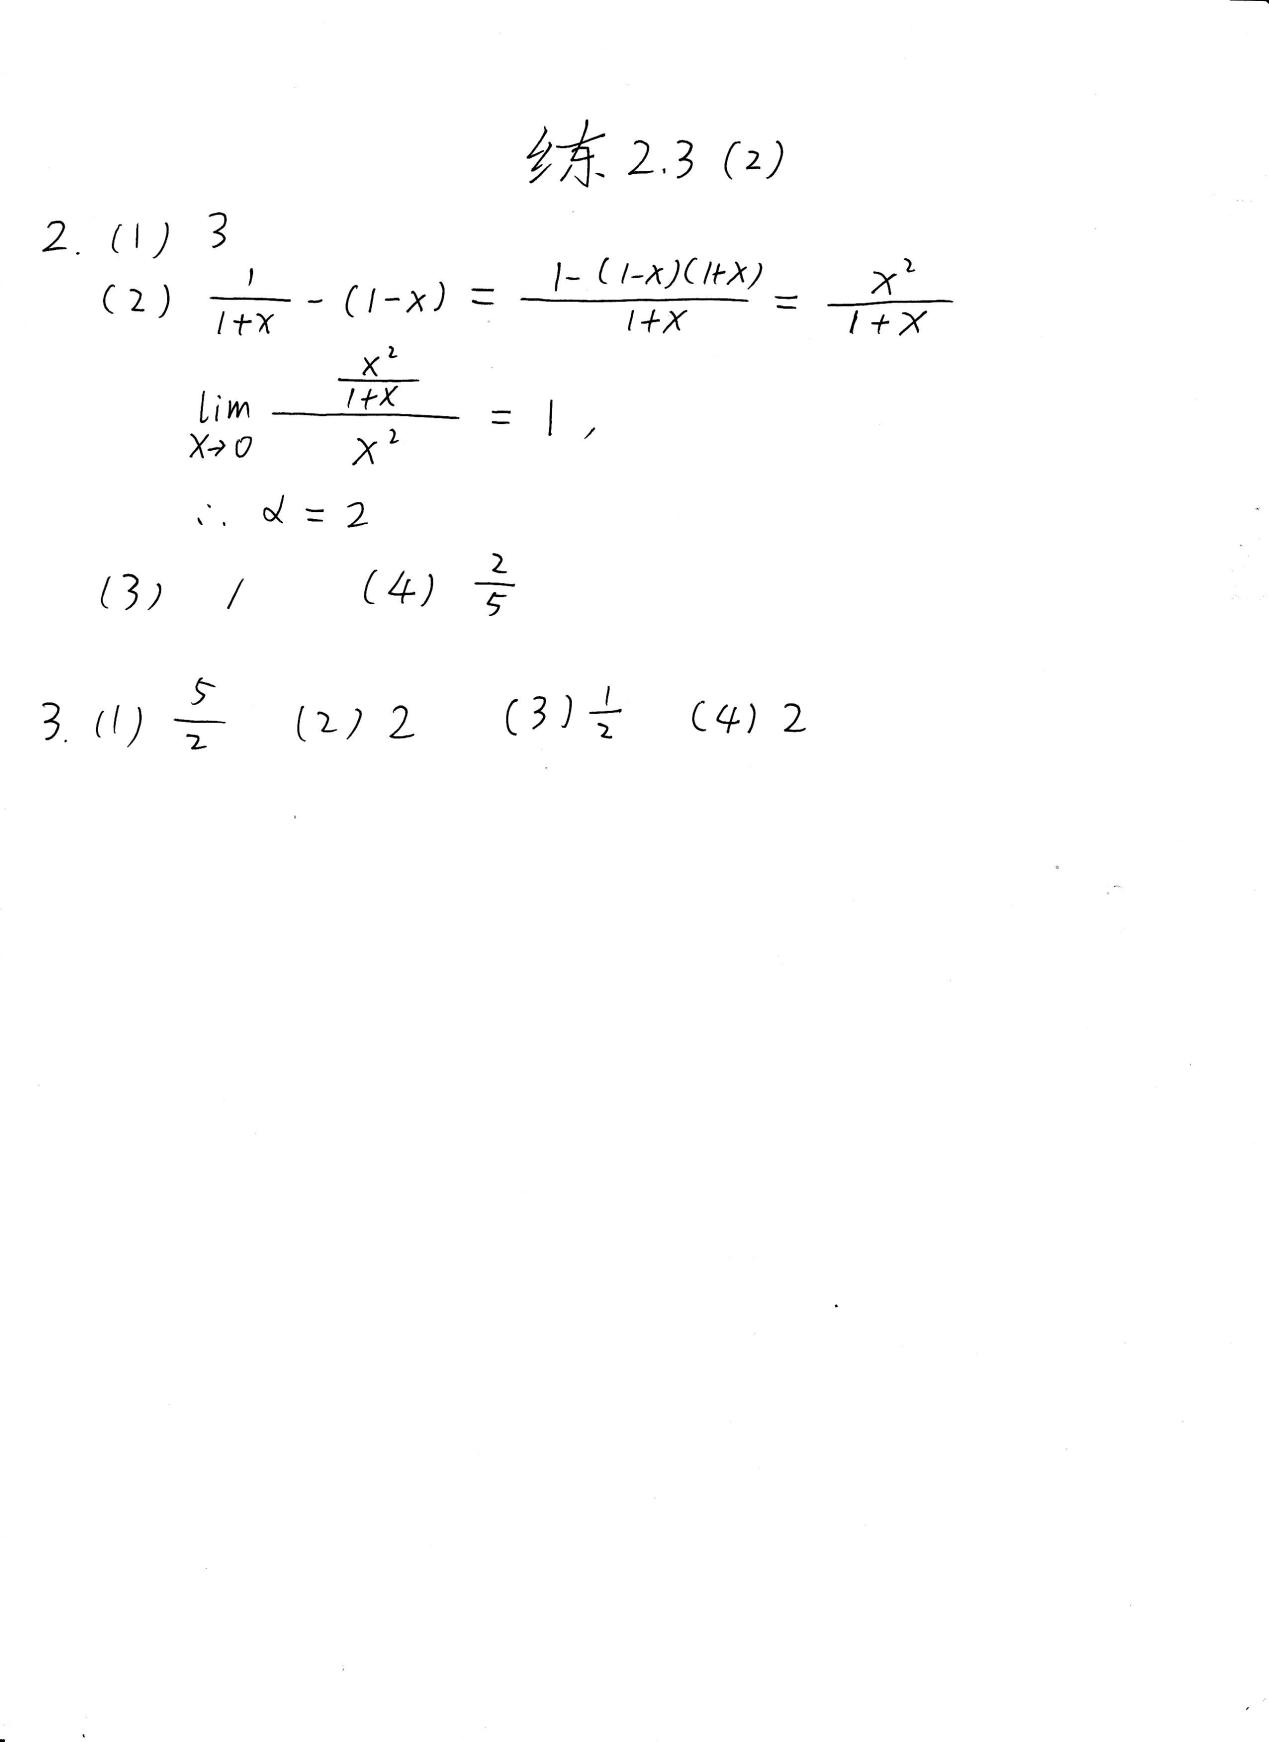 练 2.3 (2)
2. (1) 3
(2) \frac{1}{1+x} - (1-x) = \frac{1-(1-x)(1+x)}{1+x} = \frac{x^2}{1+x}
\lim_{x→0} \frac{\frac{x^2}{1+x}}{x^2} = 1,
∴ α = 2
(3) 1 (4) \frac{2}{5}
3. (1) \frac{5}{2} (2) 2 (3) \frac{1}{2} (4) 2